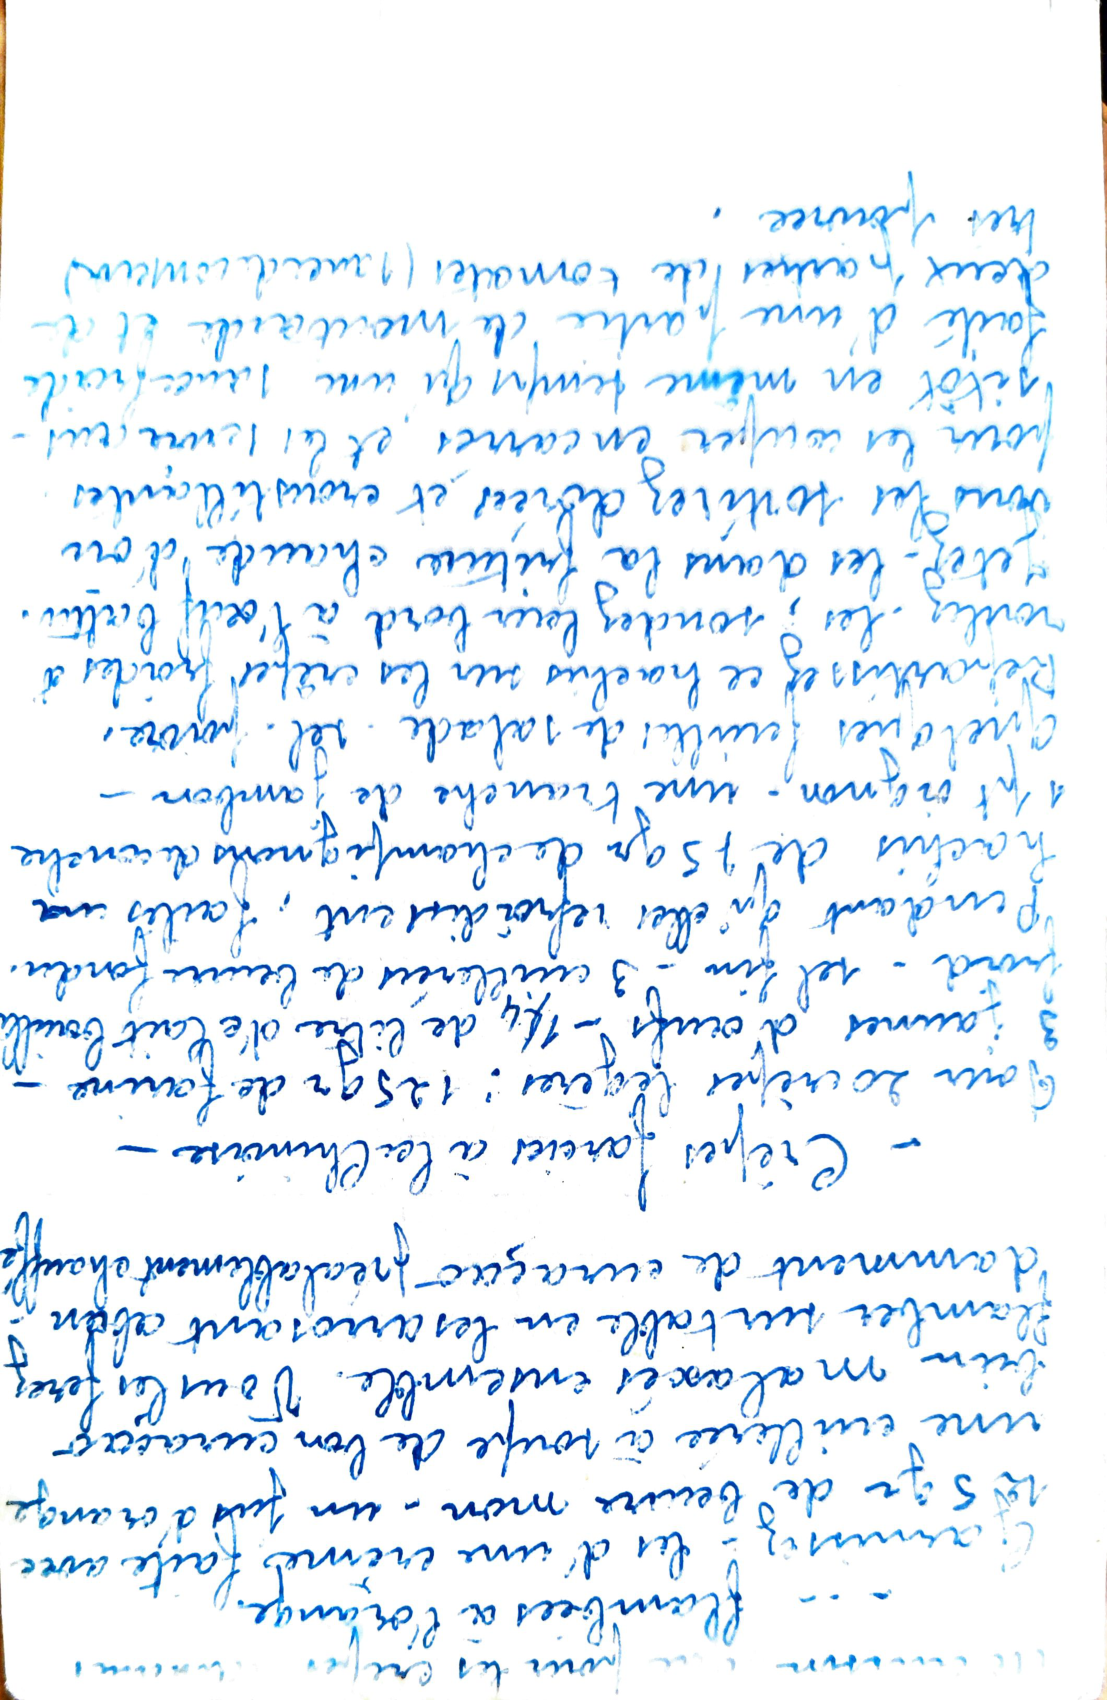 pour les crêpes
-.. flambées à l'orange.
Garnissez-les d'une crème faite avec
125 gr de beurre mou - un jus d'orange
une cuillerée à soupe de bon curaçao
bien malaxés ensemble. Vous les ferez
flamber sur table en les arrosant abon-
damment de curaçao préalablement chauffé
- Crêpes farcies à la Chinoise -
Pour 20 crêpes légères : 125 gr de farine -
3 jaunes d'oeufs - 1/4 de litre de lait bouilli
froid - sel fin - 3 cuillerées de beurre fondu.
Pendant qu'elles refroidissent, faites un
hachis de 75 gr de champignons de couche
1 pt oignon - une tranche de jambon -
Quelques feuilles de salade. sel. poivre.
Répartissez ce hachis sur les crêpes froides &
roulez-les ; soudez leur bord à l'oeuf battu.
Jetez-les dans la friture chaude d'où
vous les sortirez dorées et croustillantes
pour les couper en carrés et les servir aus-
sitôt en même temps qu'une sauce froide
faite d'une partie de moutarde et de
deux parties de tomates (sauce de conserve)
très poivrée.